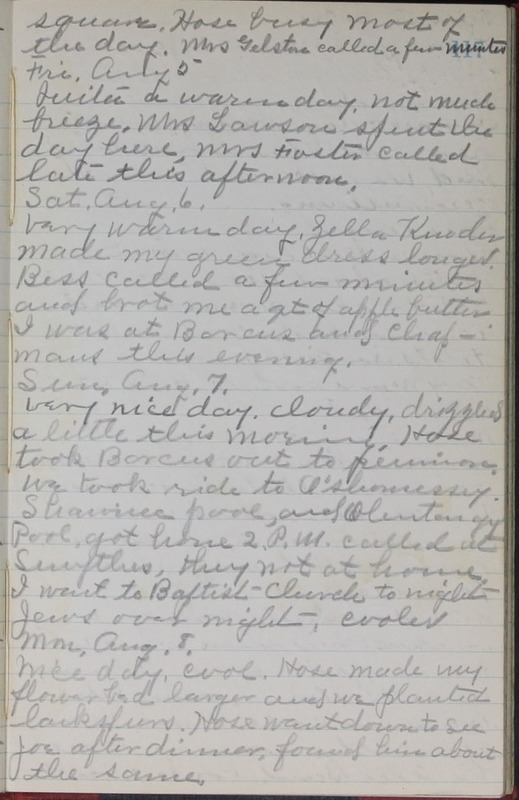 square. Hose busy most of
the day. Mrs Gelston called a few minutes
117
Fri, Aug 5
Quite a warm day, not much
breeze, Mrs Lawson spent the
day here, Mrs Foster called
late this afternoon.
Sat. Aug. 6.
Very warm day. Zella Kinder
made my green dress longer.
Bess called a few minutes
and brot me a qt of apple butter
I was at Barcus and Chap-
mans this evening.
Sun, Aug. 7.
Very nice day. cloudy, drizzled
a little this morning. Hose
took Barcus out to reunion.
We took ride to O'shaunessy.
Shawnee pool, and Olentangy
Pool, got home 2. P.M. called at
they not at home,
I went to Baptist Church to night
Jews over night, cooler
Mon, Aug. 8.
Nice day, cool. Hose made my
flower bed larger and we planted
larkspurs. Hose went down to see
Joe after dinner, found him about
the same.